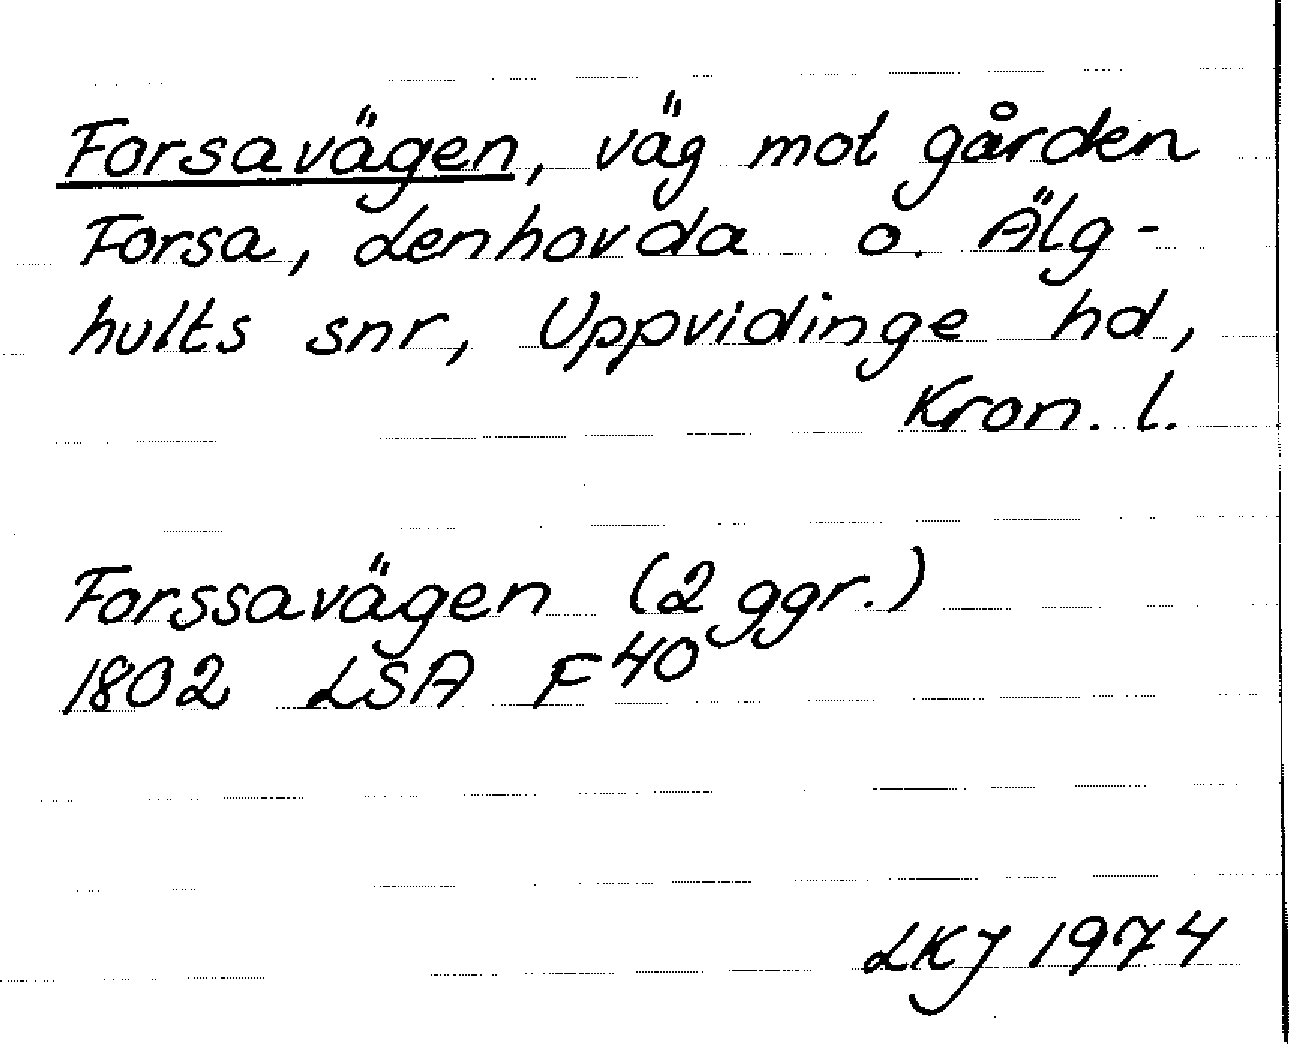 Forsavägen, väg mot gården
Forsa, Lenhovda o. Älg-
hults snr, Uppvidinge hd,
Kron. l.
Forssavägen (2 ggr.)
1802 LSA F 40
LKJ 1974